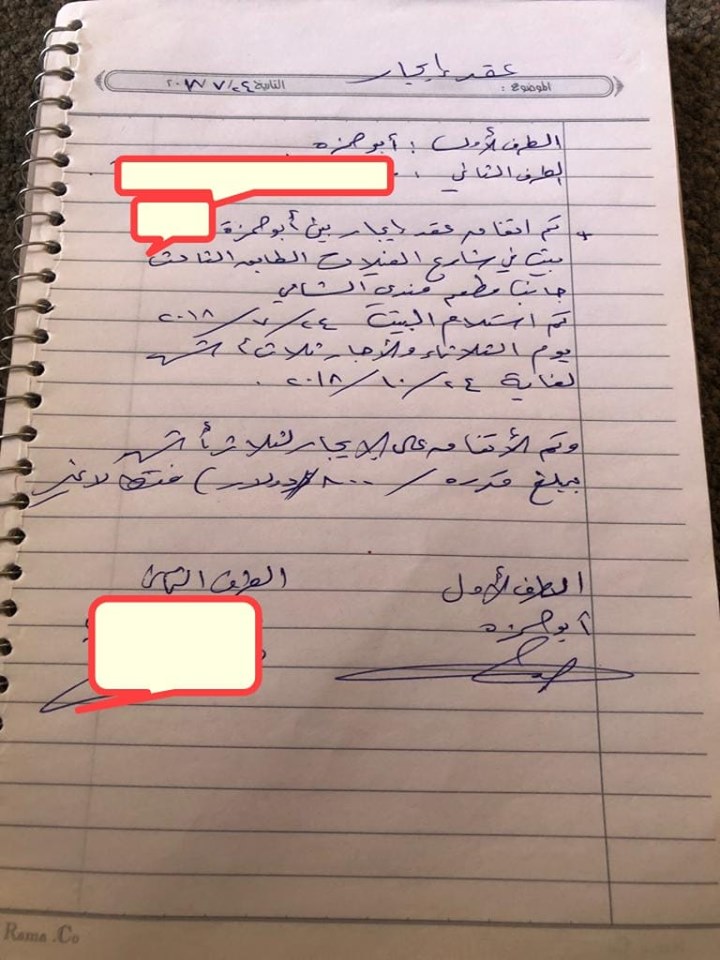 عقد إيجار
الموضوع : التاريخ ٢٤/٧/٢٠١٨
الطرف الأول : أبو حمزه
الطرف الثاني :
* تم اتفاق عقد إيجار بين أبو حمزة
بيت في شارع الفيلات الطابق الثالث
جانب مطعم مندي الشامي
تم استلام البيت ٢٤/٧/٢٠١٨
يوم الثلاثاء والأجار ثلاث أشهر
لغاية ٢٤/١٠/٢٠١٨ .
وتم الأتفاق على الإيجار لثلاث أشهر
بمبلغ قدره / ٨٠٠$ دولار) فقط لا غير
الطرف الأول الطرف الثاني
أبو حمزه
Rama .Co